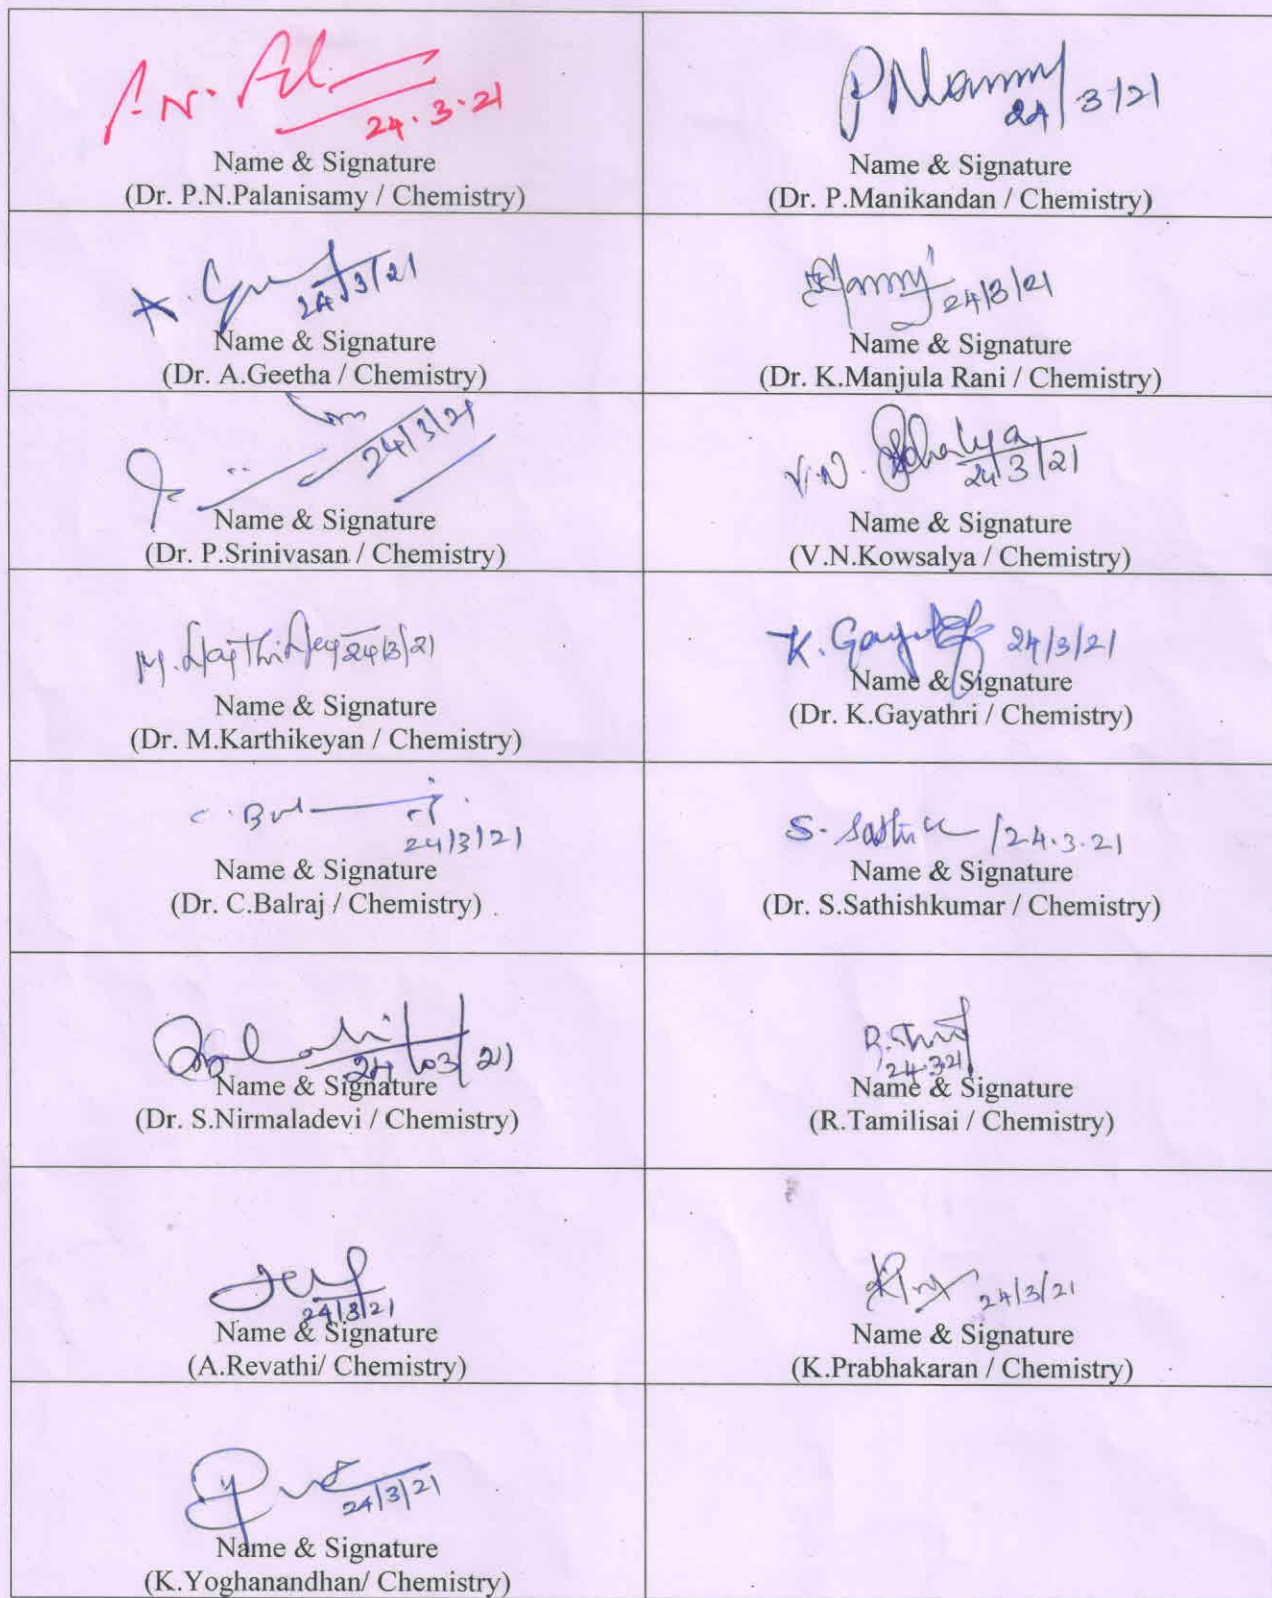 24.3.21
Name & Signature
(Dr. P.N.Palanisamy / Chemistry)
24/3/21
Name & Signature
(Dr. P.Manikandan / Chemistry)
A. 24/3/21
Name & Signature
(Dr. A.Geetha / Chemistry)
24/3/21
Name & Signature
(Dr. K.Manjula Rani / Chemistry)
24/3/21
Name & Signature
(Dr. P.Srinivasan / Chemistry)
V.N. 24/3/21
Name & Signature
(V.N.Kowsalya / Chemistry)
M. 24/3/21
Name & Signature
(Dr. M.Karthikeyan / Chemistry)
K. 24/3/21
Name & Signature
(Dr. K.Gayathri / Chemistry)
24/3/21
Name & Signature
(Dr. C.Balraj / Chemistry)
S. /24.3.21
Name & Signature
(Dr. S.Sathishkumar / Chemistry)
24/03/21
Name & Signature
(Dr. S.Nirmaladevi / Chemistry)
24.3.21
Name & Signature
(R.Tamilisai / Chemistry)
24/3/21
Name & Signature
(A.Revathi/ Chemistry)
24/3/21
Name & Signature
(K.Prabhakaran / Chemistry)
24/3/21
Name & Signature
(K.Yoghanandhan/ Chemistry)